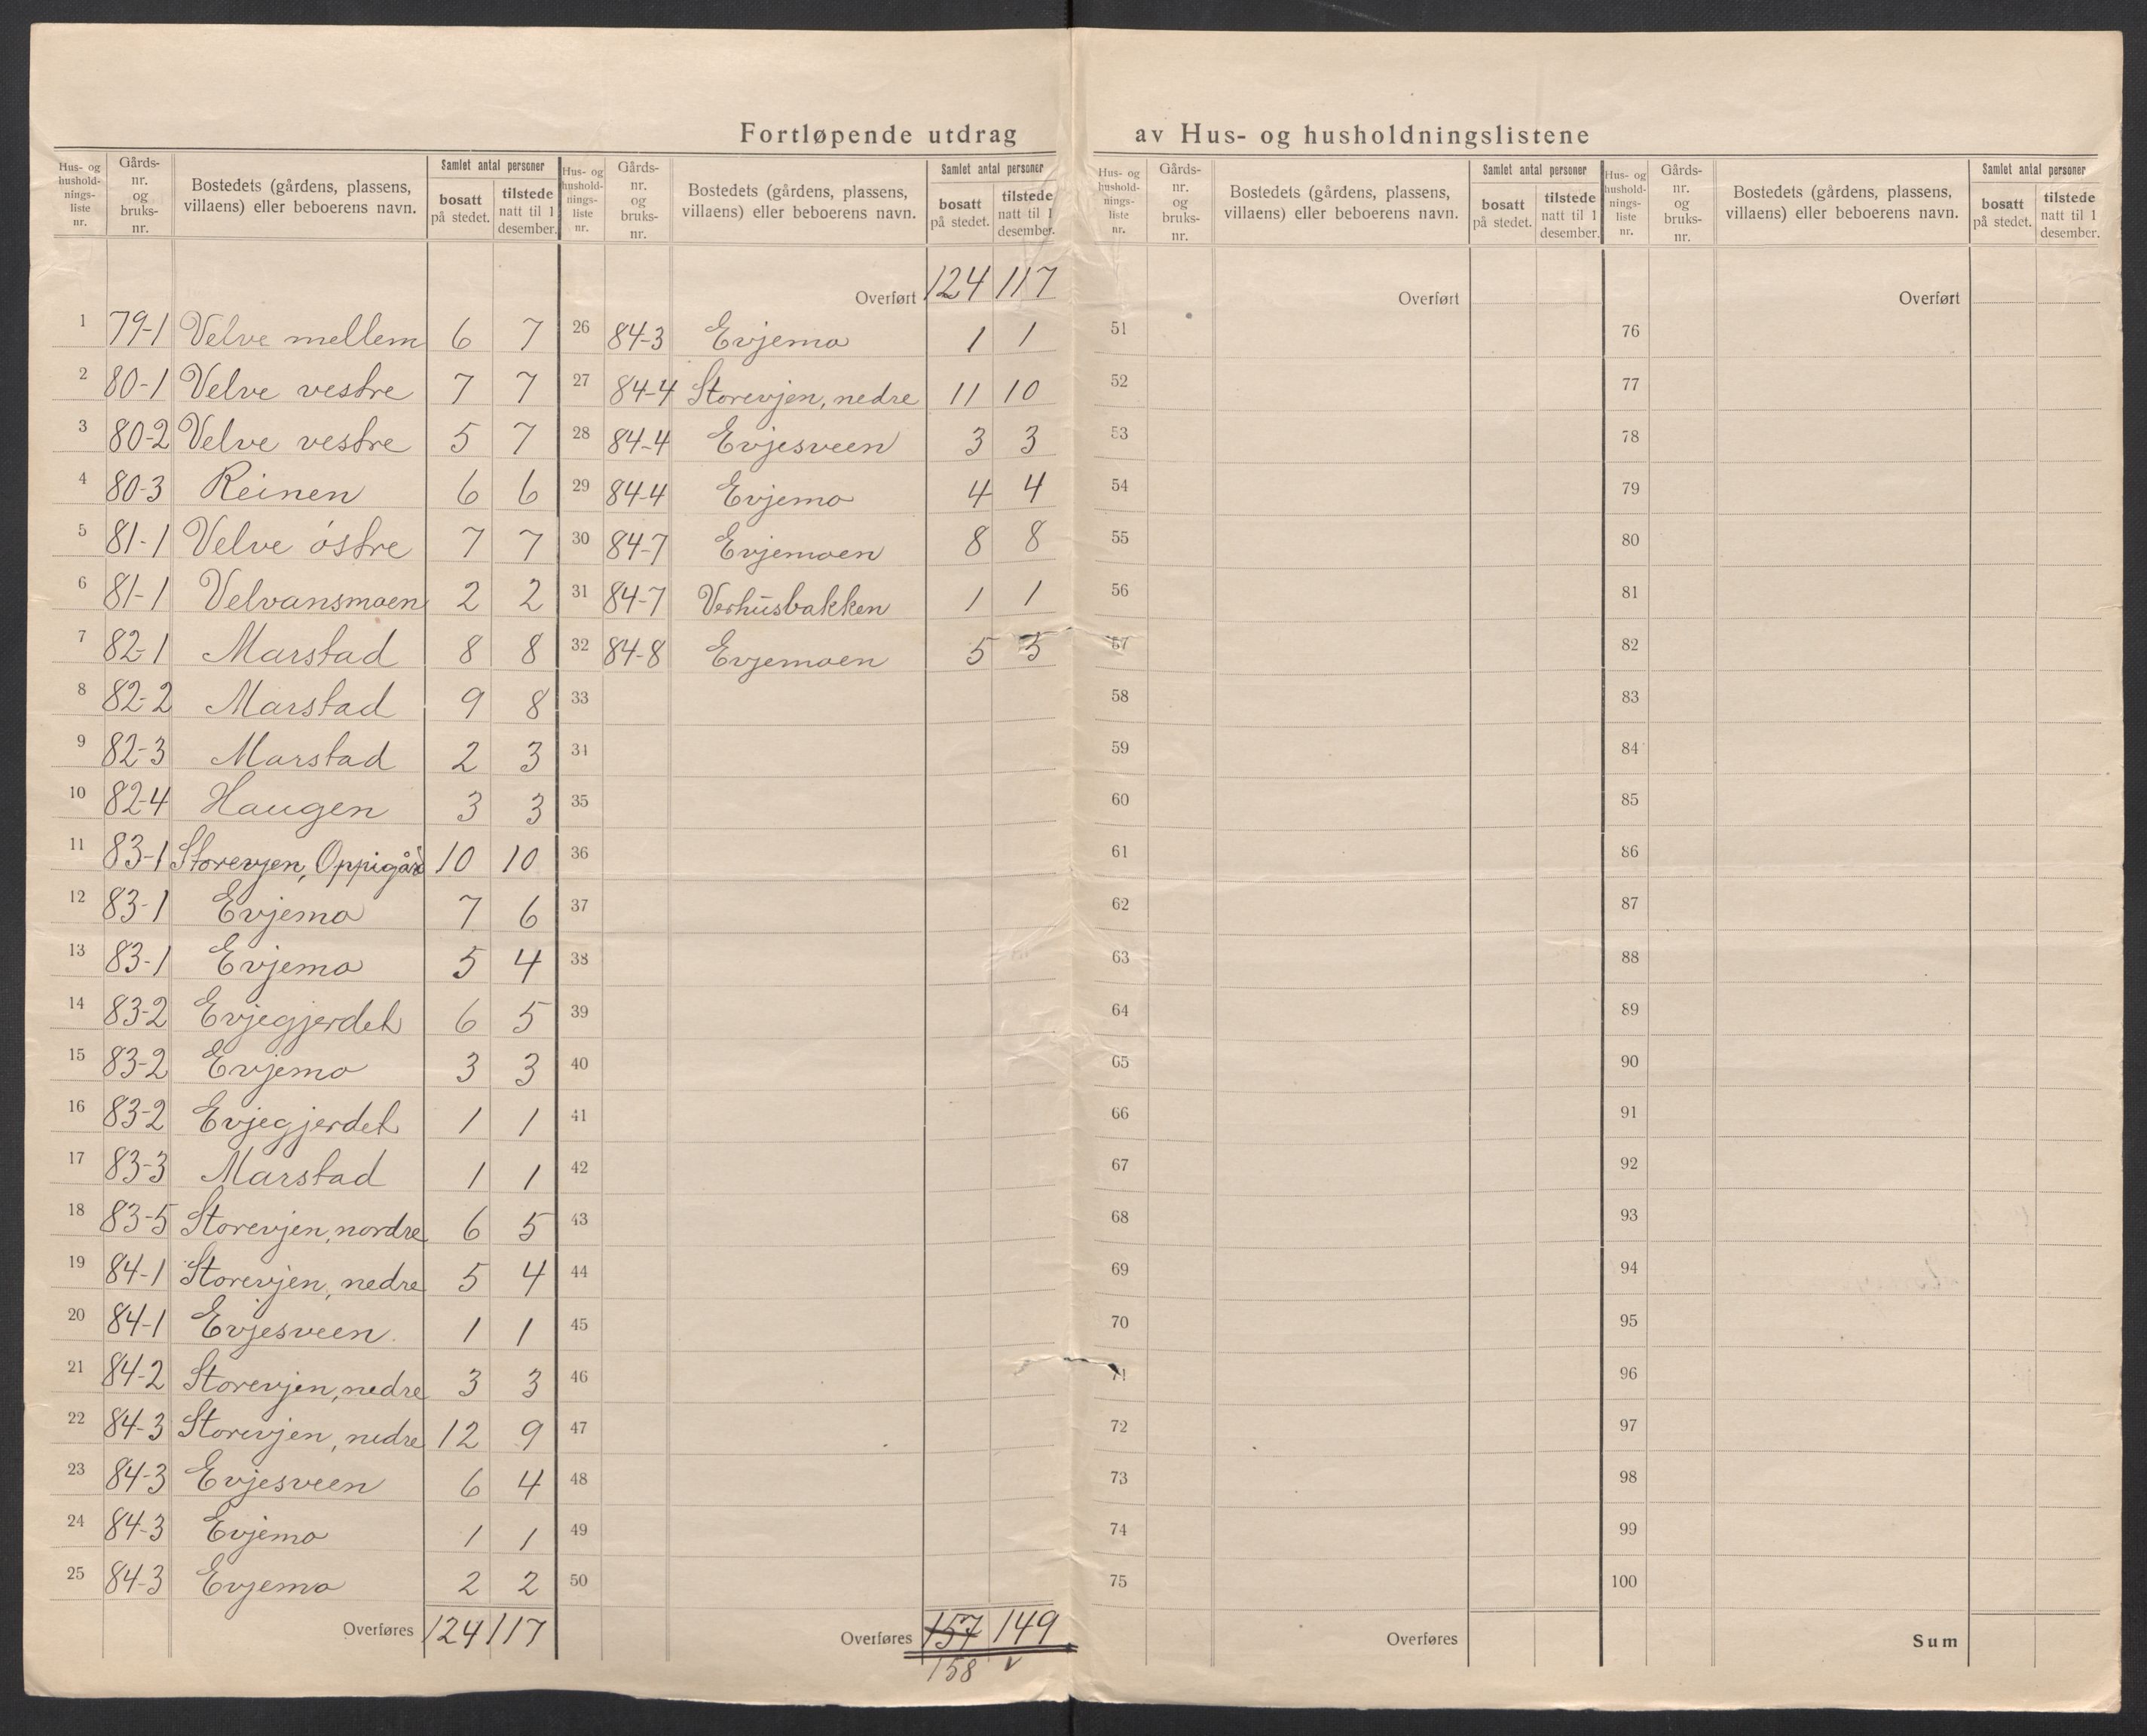 Fortløpende utdrag av Hus- og husholdningslistene
Hus- og hushold-nings-liste nr. | Gårds-nr. og bruks-nr. | Bostedets (gårdens, plassens, villaens) eller beboerens navn. | Samlet antal personer | bosatt på stedet. | tilstede natt til 1 desember.
1 79-1 Velve mellem 6 7
2 80-1 Velve vestre 7 7
3 80-2 Velve vestre 5 7
4 80-3 Reinen 6 6
5 81-1 Velve østre 7 7
6 81-1 Velvansmoen 2 2
7 82-1 Marstad 8 8
8 82-2 Marstad 9 8
9 82-3 Marstad 2 3
10 82-4 Haugen 3 3
11 83-1 Storevjen, Oppigård 10 10
12 83-1 Evjemo 7 6
13 83-1 Evjemo 5 4
14 83-2 Evjegjerdet 6 5
15 83-2 Evjemo 3 3
16 83-2 Evjegjerdet 1 1
17 83-3 Marstad 1 1
18 83-5 Storevjen, nordre 6 5
19 84-1 Storevjen, nedre 5 4
20 84-1 Evjesveen. 1 1
21 84-2 Storevjen, nedre 3 3
22 84-3 Storevjen, nedre 12 9
23 84-3 Evjesveen 6 4
24 84-3 Evjemo 1 1
25 84-3 Evjemo 2 2
Overføres 124 117
Hus- og hushold-nings-liste nr. | Gårds-nr. og bruks-nr. | Bostedets (gårdens, plassens, villaens) eller beboerens navn. | Samlet antal personer | bosatt på stedet. | tilstede natt til 1 desember.
Overført 124 117
26 84-3 Evjemo 1 1
27 84-4 Storevjen, nedre 11 10
28 84-4 Evjesveen 3 3
29 84-4 Evjemo 4 4
30 84-7 Evjemoen 8 8
31 84-7 Verhusbakken 1 1
32 84-8 Evjemoen 5 5
33
34
35
36
37
38
39
40
41
42
43
44
45
46
47
48
49
50
Overføres 157 149
158 v
Hus- og hushold-nings-liste nr. | Gårds-nr. og bruks-nr. | Bostedets (gårdens, plassens, villaens) eller beboerens navn. | Samlet antal personer | bosatt på stedet. | tilstede natt til 1 desember.
Overført
51
52
53
54
55
56
57
58
59
60
61
62
63
64
65
66
67
68
69
70
71
72
73
74
75
Overføres
Hus- og hushold-nings-liste nr. | Gårds-nr. og bruks-nr. | Bostedets (gårdens, plassens, villaens) eller beboerens navn. | Samlet antal personer | bosatt på stedet. | tilstede natt til 1 desember.
Overført
76
77
78
79
80
81
82
83
84
85
86
87
88
89
90
91
92
93
94
95
96
97
98
99
100
Sum